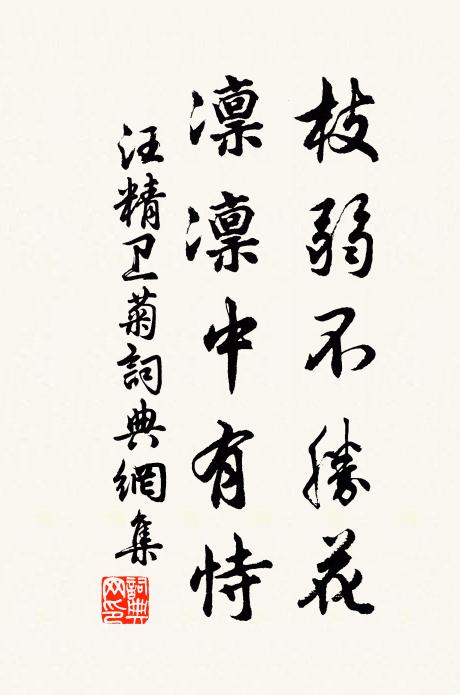 枝弱不勝花
凛凛中有恃
汪精卫菊詞典網集
詞典網印